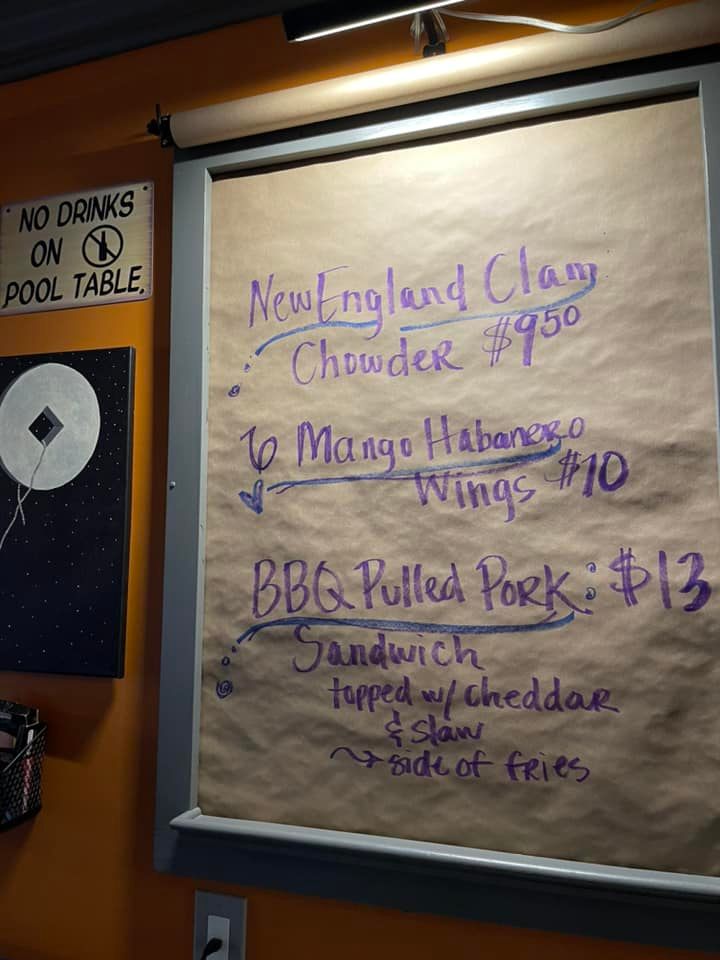 NO DRINKS
ON
POOL TABLE.
New England Clam
Chowder $950
6 Mango Habanero
Wings $10
BBQ Pulled Pork: $13
Sandwich
topped w/ cheddar
& slaw
→ side of fries